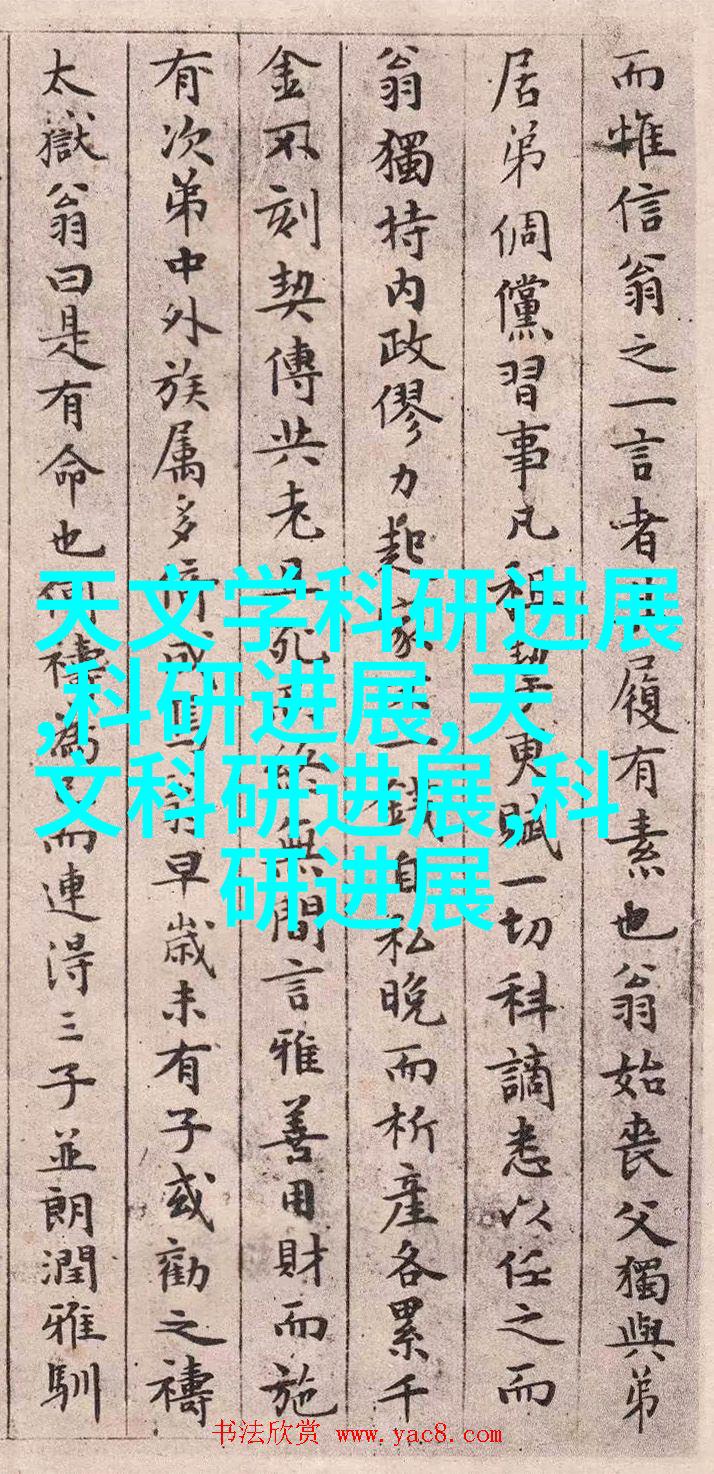 而惟信翁之一言者其履有素也翁始喪父獨與弟
居弟倜儻習事凡租挈更賦一切科謫悉以任之而
翁獨持内政僇力起家一錢自私晚而析產各累千
金不刻契傳共老且死而終無間言雅善用財而施
有次第中外族属多倚成焉翁早歲未有子或勸之禱
太嶽翁曰是有命也何禱為已而連得三子並朗潤雅馴
天文学科研进展
,科研进展,天
文科研进展,科
研进展
书法欣赏 www.yac8.com